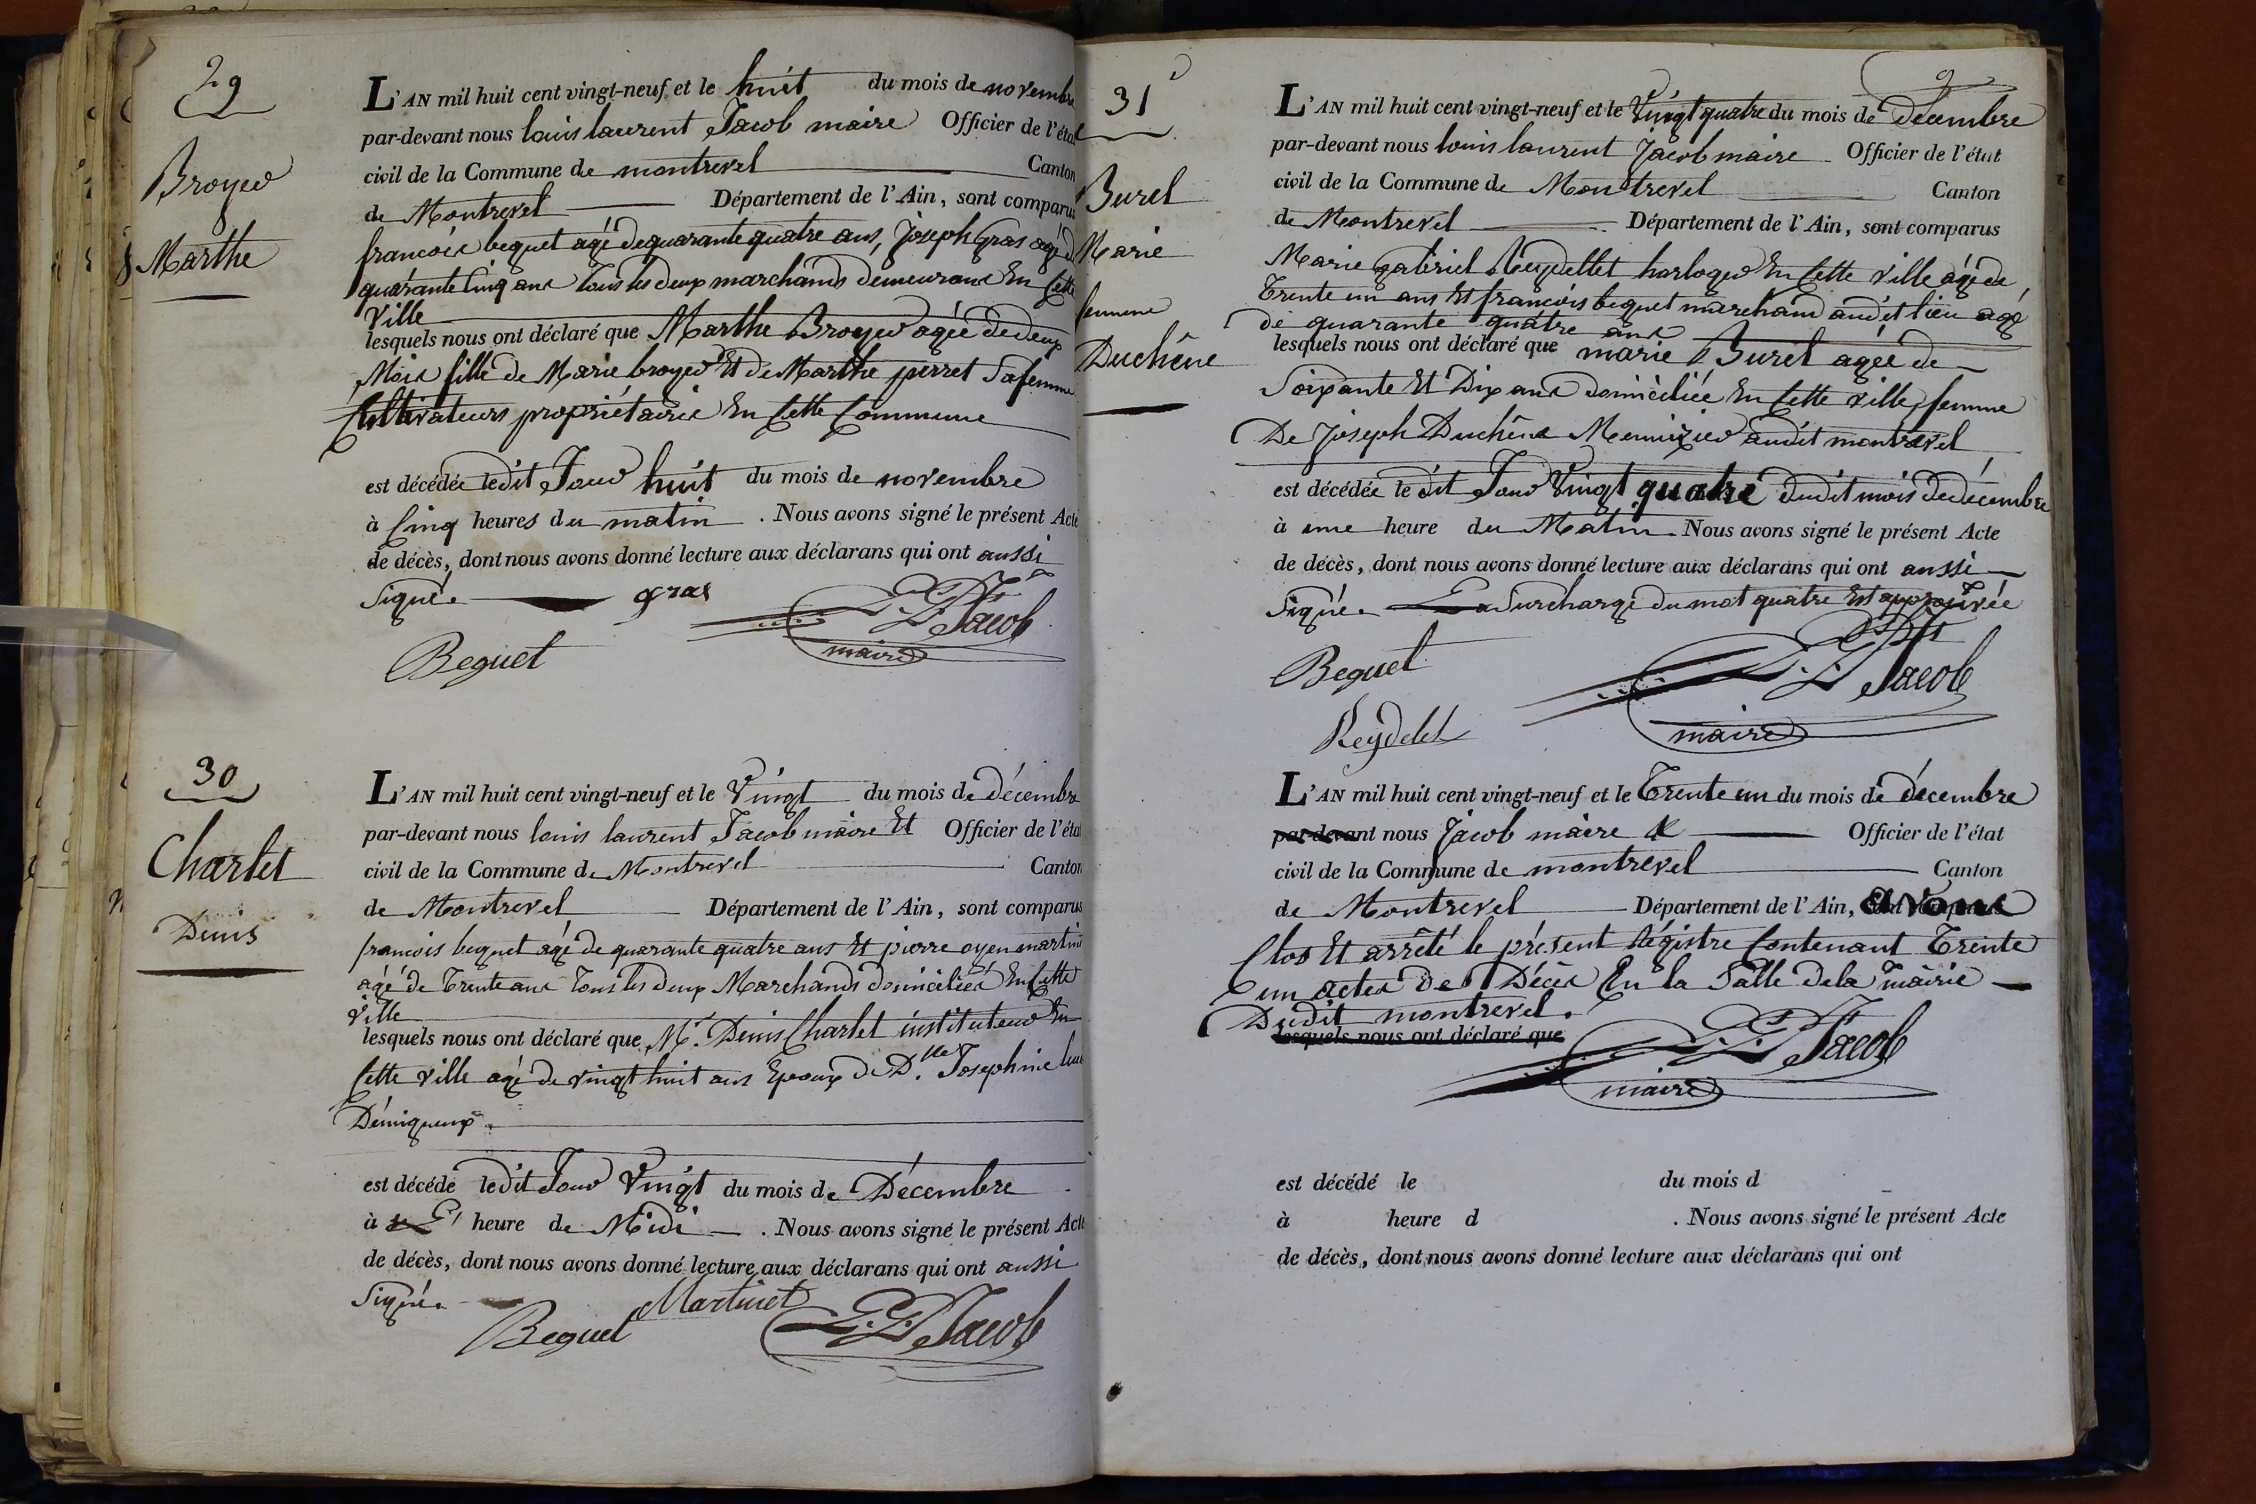 29
Broyer
Marthe
L'AN mil huit cent vingt-neuf et le huit du mois de novembre
par-devant nous louis laurent Jacob maire Officier de l'état
civil de la Commune de montrevel Canton
de Montrevel Département de l'Ain, sont comparus
francois bequet agé de quarante quatre ans, Joseph Gras agé de
quarante Cinq ans tous les deux marchands demeurans En Cette
ville
lesquels nous ont déclaré que Marthe Broyer agée de deux
Mois fille de Marie broyer Et de Marthe perret Sa femme
Cultivateurs propriétaires En Cette Commune
est décédée ledit Jour huit du mois de novembre
à Cinq heures du matin . Nous avons signé le présent Acte
de décès, dont nous avons donné lecture aux déclarans qui ont aussi
Signé. gras
L. L. Jacob
maire
Bequet
30
Charlet
Denis
L'AN mil huit cent vingt-neuf et le Vingt du mois de décembre
par-devant nous louis laurent Jacob maire Et Officier de l'état
civil de la Commune de Montrevel Canton
de Montrevel Département de l'Ain, sont comparus
francois bequet agé de quarante quatre ans Et pierre oyen martinet
agé de Trente ans Tous les deux Marchands domiciliés En Cette
ville
lesquels nous ont déclaré que Mr. Denis Charlet instituteur En
Cette ville agé de vingt huit ans Epoux de Dlle. Josephine
Démiqueux.
est décédé ledit Jour Vingt du mois de Décembre
à heure de Midi . Nous avons signé le présent Acte
de décès, dont nous avons donné lecture aux déclarans qui ont aussi
Signé.
Martinet
Bequet L. L. Jacob
31
Burel
Marie
femme
Duchêne
L'AN mil huit cent vingt-neuf et le Vingt quatre du mois de Décembre
par-devant nous louis laurent Jacob maire Officier de l'état
civil de la Commune de Montrevel Canton
de Montrevel Département de l'Ain, sont comparus
Marie gabriel Reydellet horloger En Cette ville agé de
Trente un ans Et francois bequet marchand audit lieu agé
de quarante quatre ans
lesquels nous ont déclaré que marie Burel agée de
Soixante Et Dix ans domiciliée En Cette ville, femme
De Joseph Duchêne Menuizier audit montrevel
est décédée le dit Jour Vingt quatre dudit mois de décembre
à une heure du Matin. Nous avons signé le présent Acte
de décès, dont nous avons donné lecture aux déclarans qui ont aussi
Signé. La Surcharge du mot quatre Est approuvée
Bequet L. L. Jacob
Reydelet maire
L'AN mil huit cent vingt-neuf et le Trente un du mois de décembre
par-devant nous Jacob maire & Officier de l'état
civil de la Commune de montrevel Canton
de Montrevel Département de l'Ain, avons
Clos Et arrêté le présent Régistre Contenant Trente
un actes de Décès En la Salle de la mairie
Dudit montrevel.
lesquels nous ont déclaré que
L. L. Jacob
maire
est décédé le du mois d
à heure d . Nous avons signé le présent Acte
de décès, dont nous avons donné lecture aux déclarans qui ont